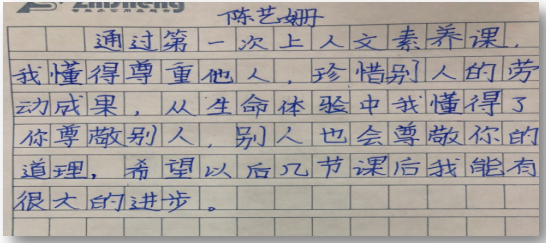 Zhisheng
陈艺姗
通过第一次上人文素养课,
我懂得尊重他人,珍惜别人的劳
动成果,从生命体验中我懂得了
你尊敬别人,别人也会尊敬你的
道理,希望以后几节课后我能有
很大的进步。